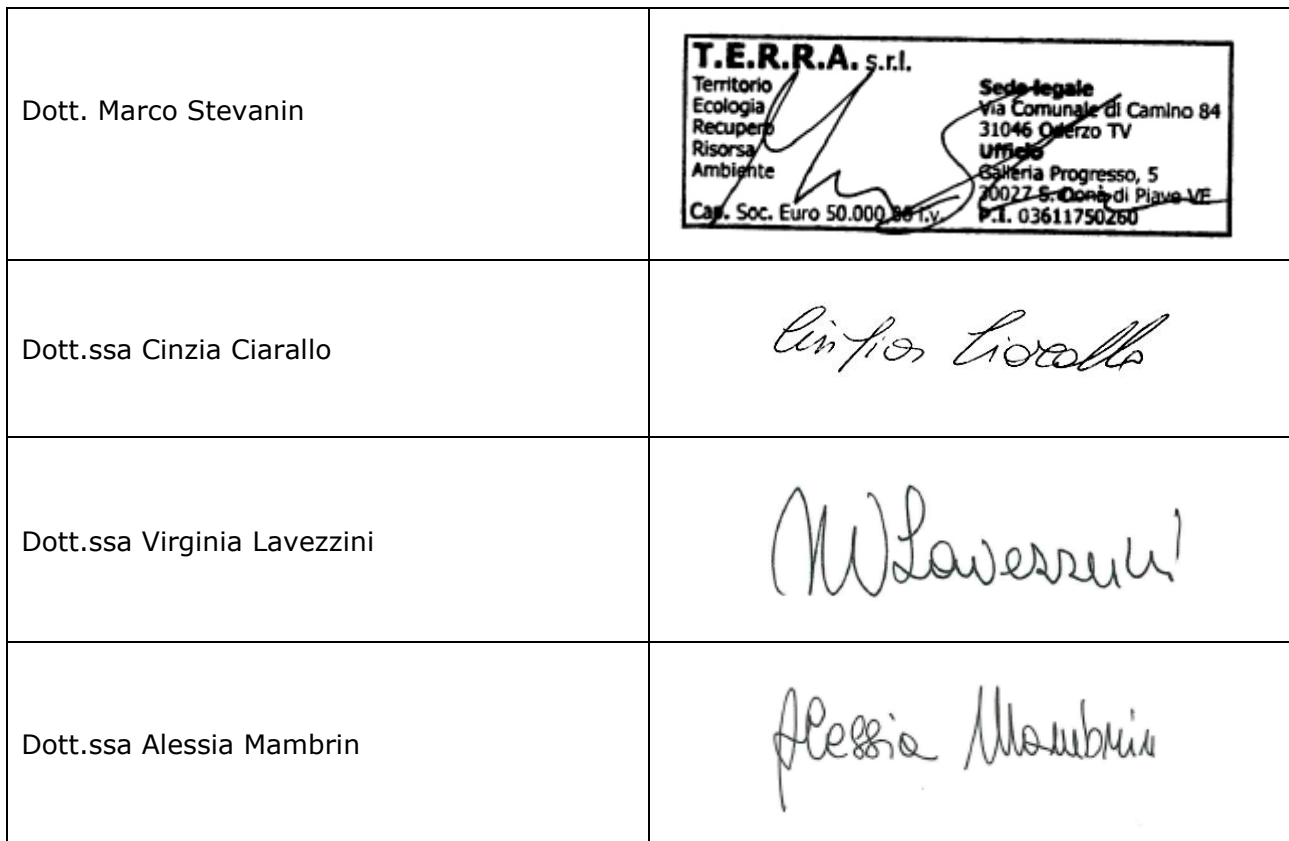 Dott. Marco Stevanin
T.E.R.R.A. s.r.l.
Territorio
Ecologia
Recupero
Risorsa
Ambiente
Cap. Soc. Euro 50.000,00 i.v.
Sede legale
Via Comunale di Camino 84
31046 Oderzo TV
Ufficio
Galleria Progresso, 5
30027 S. Donà di Piave VE
P.I. 03611750260
Dott.ssa Cinzia Ciarallo
Cinzia Ciarallo
Dott.ssa Virginia Lavezzini
Lavezzini
Dott.ssa Alessia Mambrin
Alessia Mambrin